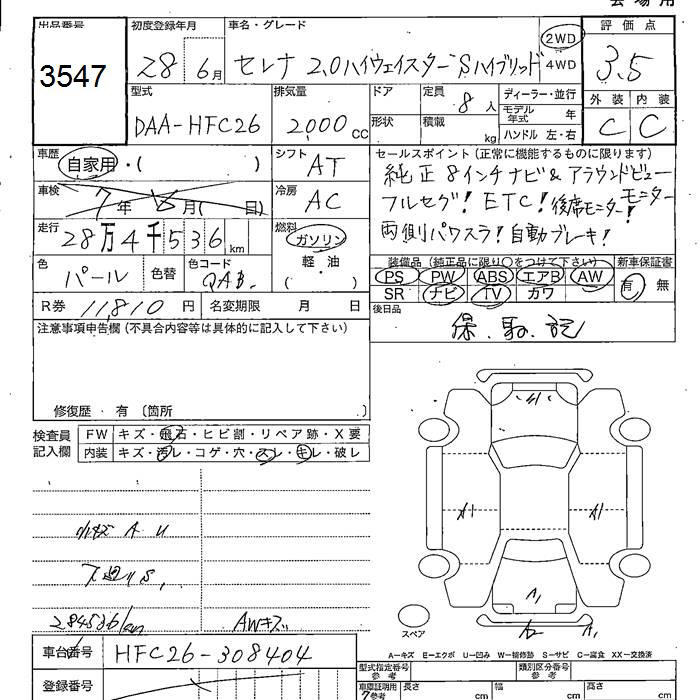 出品番号
3547
初度登録年月
28 6月
車名・グレード
セレナ 2.0ハイウェイスターSハイブリッド
2WD
4WD
評価点
3.5
型式
DAA-HFC26
排気量
2000 cc
ドア
形状
定員 8 人
積載 kg
ディーラー・並行
モデル年式 年
ハンドル 左・右
外装 内装
C C
車歴
自家用・( )
シフト
AT
セールスポイント(正常に機能するものに限ります)
純正8インチナビ&アラウンドビューモニター
フルセグ! ETC! 後席モニター!
両側パワスラ! 自動ブレーキ!
車検
7年 月( 日)
冷房
AC
走行
28万4千536km
燃料
ガソリン
軽・油
( )
色
パール
色替
色コード
QAB
装備品(純正品に限り○をつけて下さい)
PS PW ABS エアB AW
SR ナビ TV カワ
新車保証書
有 無
R券 11,810 円 名変期限 月 日
後日品
保.取.記
注意事項申告欄(不具合内容等は具体的に記入して下さい)
修復歴・有(箇所 )
検査員
記入欄
FW キズ・飛石・ヒビ割・リペア跡・X要
内装 キズ・汚レ・コゲ・穴・スレ・キレ・破レ
A U
284536km AWキズ
A1
A1
A1
スペア
A-キズ E-エクボ U-凹み W-補修跡 S-サビ C-腐食 XX-交換済
車台番号
HFC26-308404
登録番号
型式指定番号
参考
類別区分番号
参考
車庫証明用
参考
長さ cm
幅 cm
高さ cm